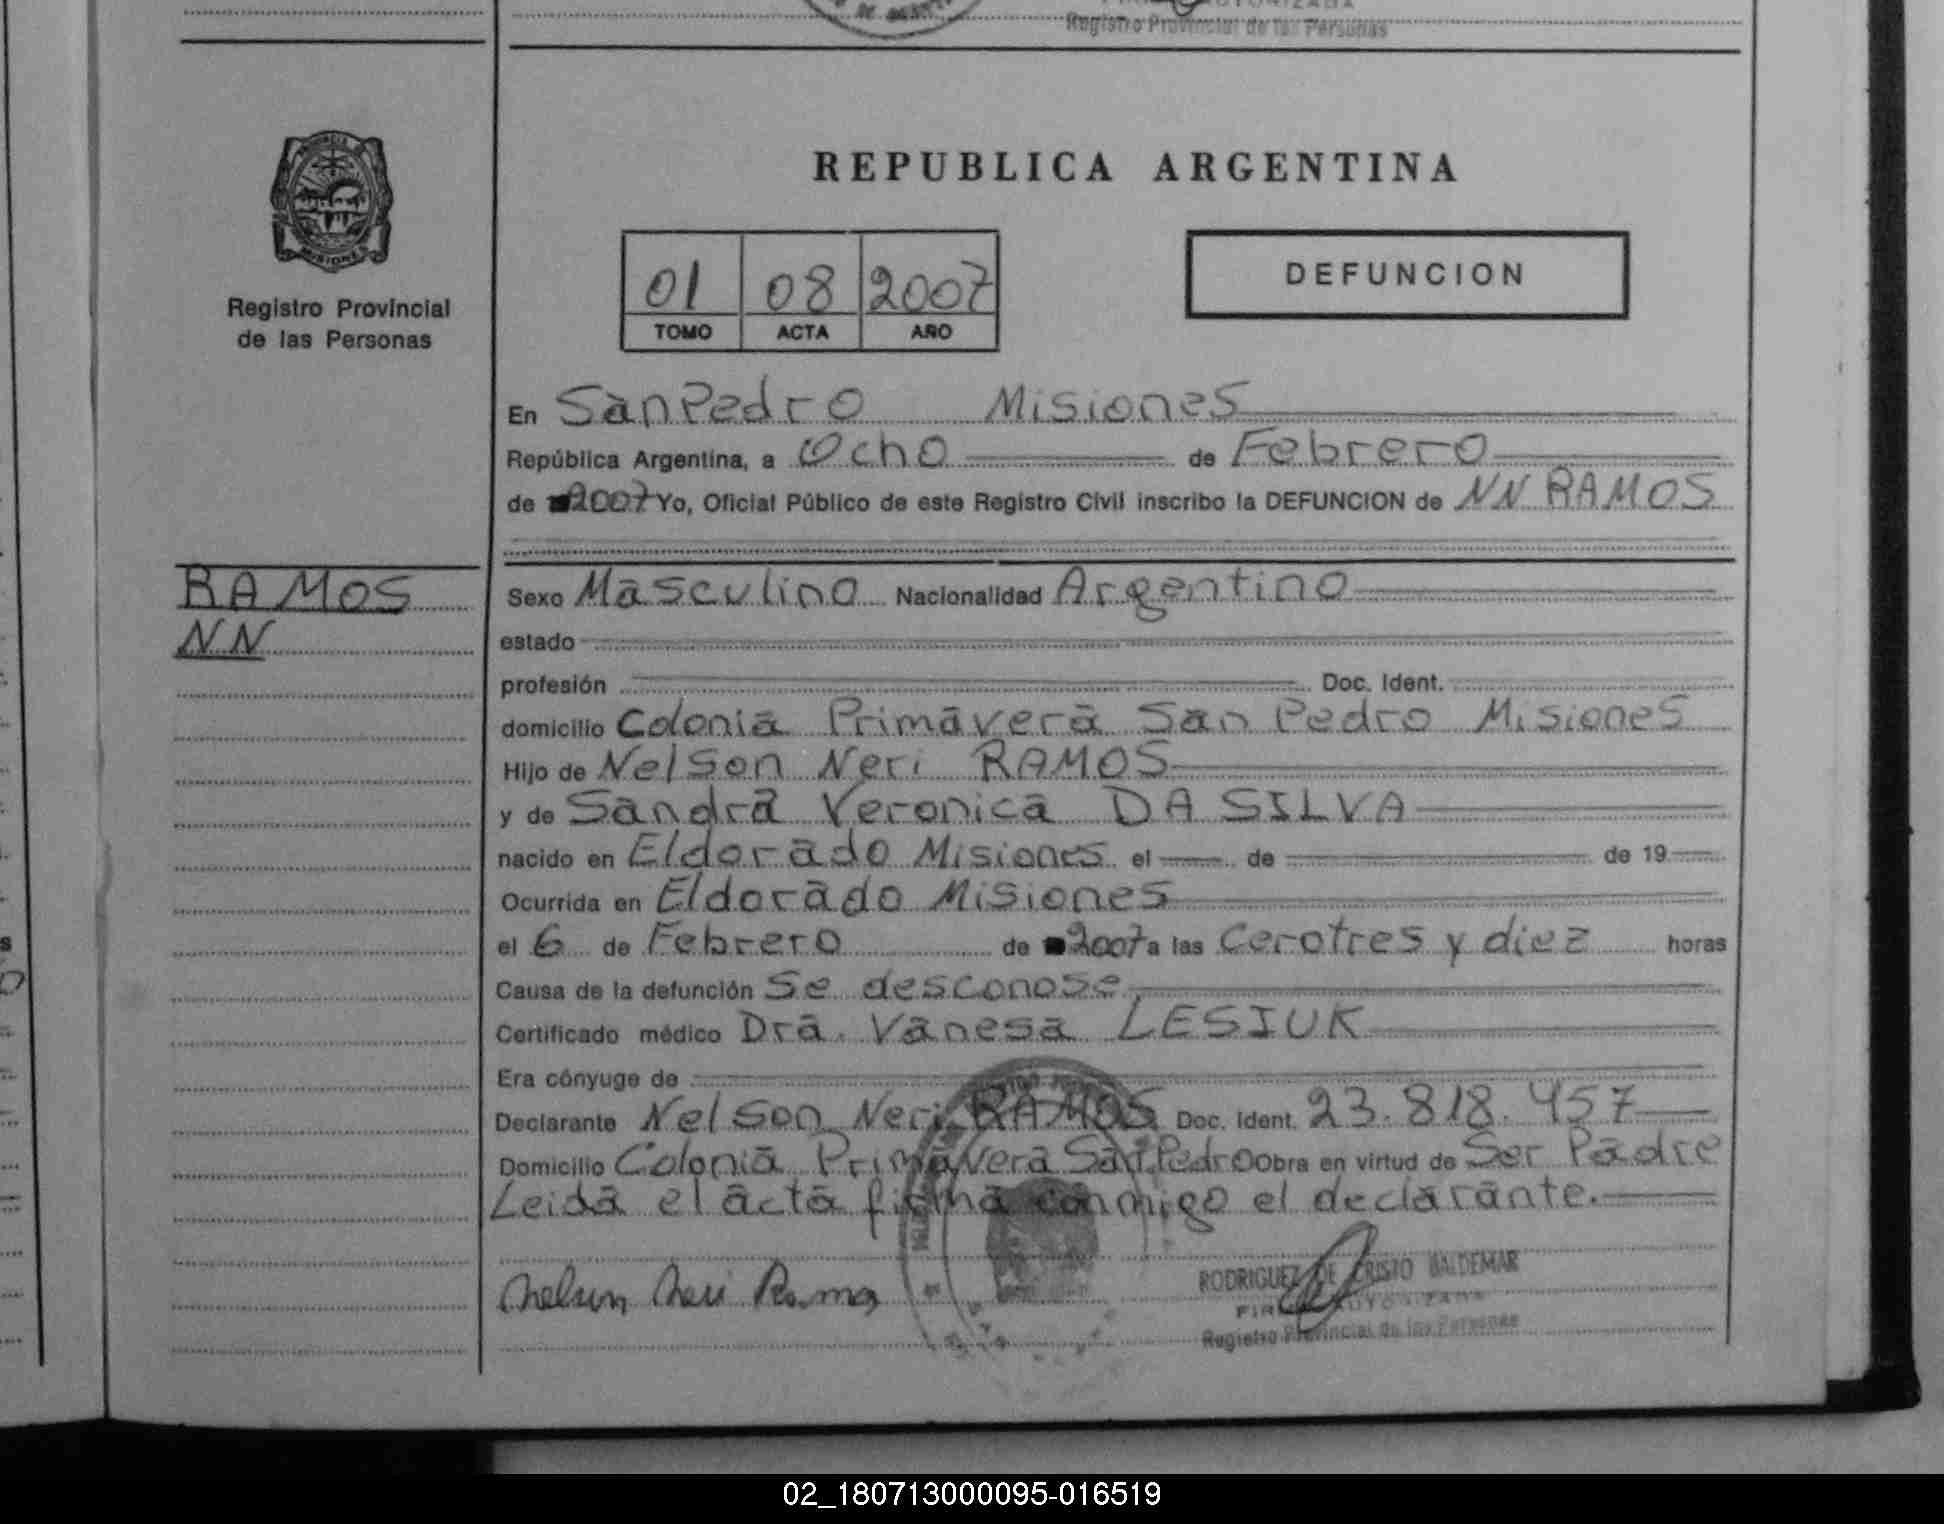 Registro Provincial de las Personas
REPUBLICA ARGENTINA
MISIONES
Registro Provincial
de las Personas
01 08 2007
TOMO ACTA AÑO
DEFUNCION
En San Pedro Misiones
República Argentina, a Ocho de Febrero
de 2007 Yo, Oficial Público de este Registro Civil inscribo la DEFUNCION de NN RAMOS
RAMOS
NN
Sexo Masculino Nacionalidad Argentino
estado
profesión Doc. Ident.
domicilio Colonia Primavera San Pedro Misiones
Hijo de Nelson Neri RAMOS
y de Sandra Veronica DA SILVA
nacido en Eldorado Misiones el de de 19
Ocurrida en Eldorado Misiones
el 6 de Febrero de 2007 a las Cerotres y diez horas
Causa de la defunción Se desconose
Certificado médico Dra. Vanesa LESIUK
Era cónyuge de
Declarante Nelson Neri RAMOS Doc. Ident. 23.818.457
Domicilio Colonia Primavera San Pedro Obra en virtud de Ser Padre
Leida el acta firma conmigo el declarante.
Nelson Neri Ramos
RODRIGUEZ DE CRISTO BALDEMAR
FIRMA AUTORIZADA
Registro Provincial de las Personas
02_180713000095-016519